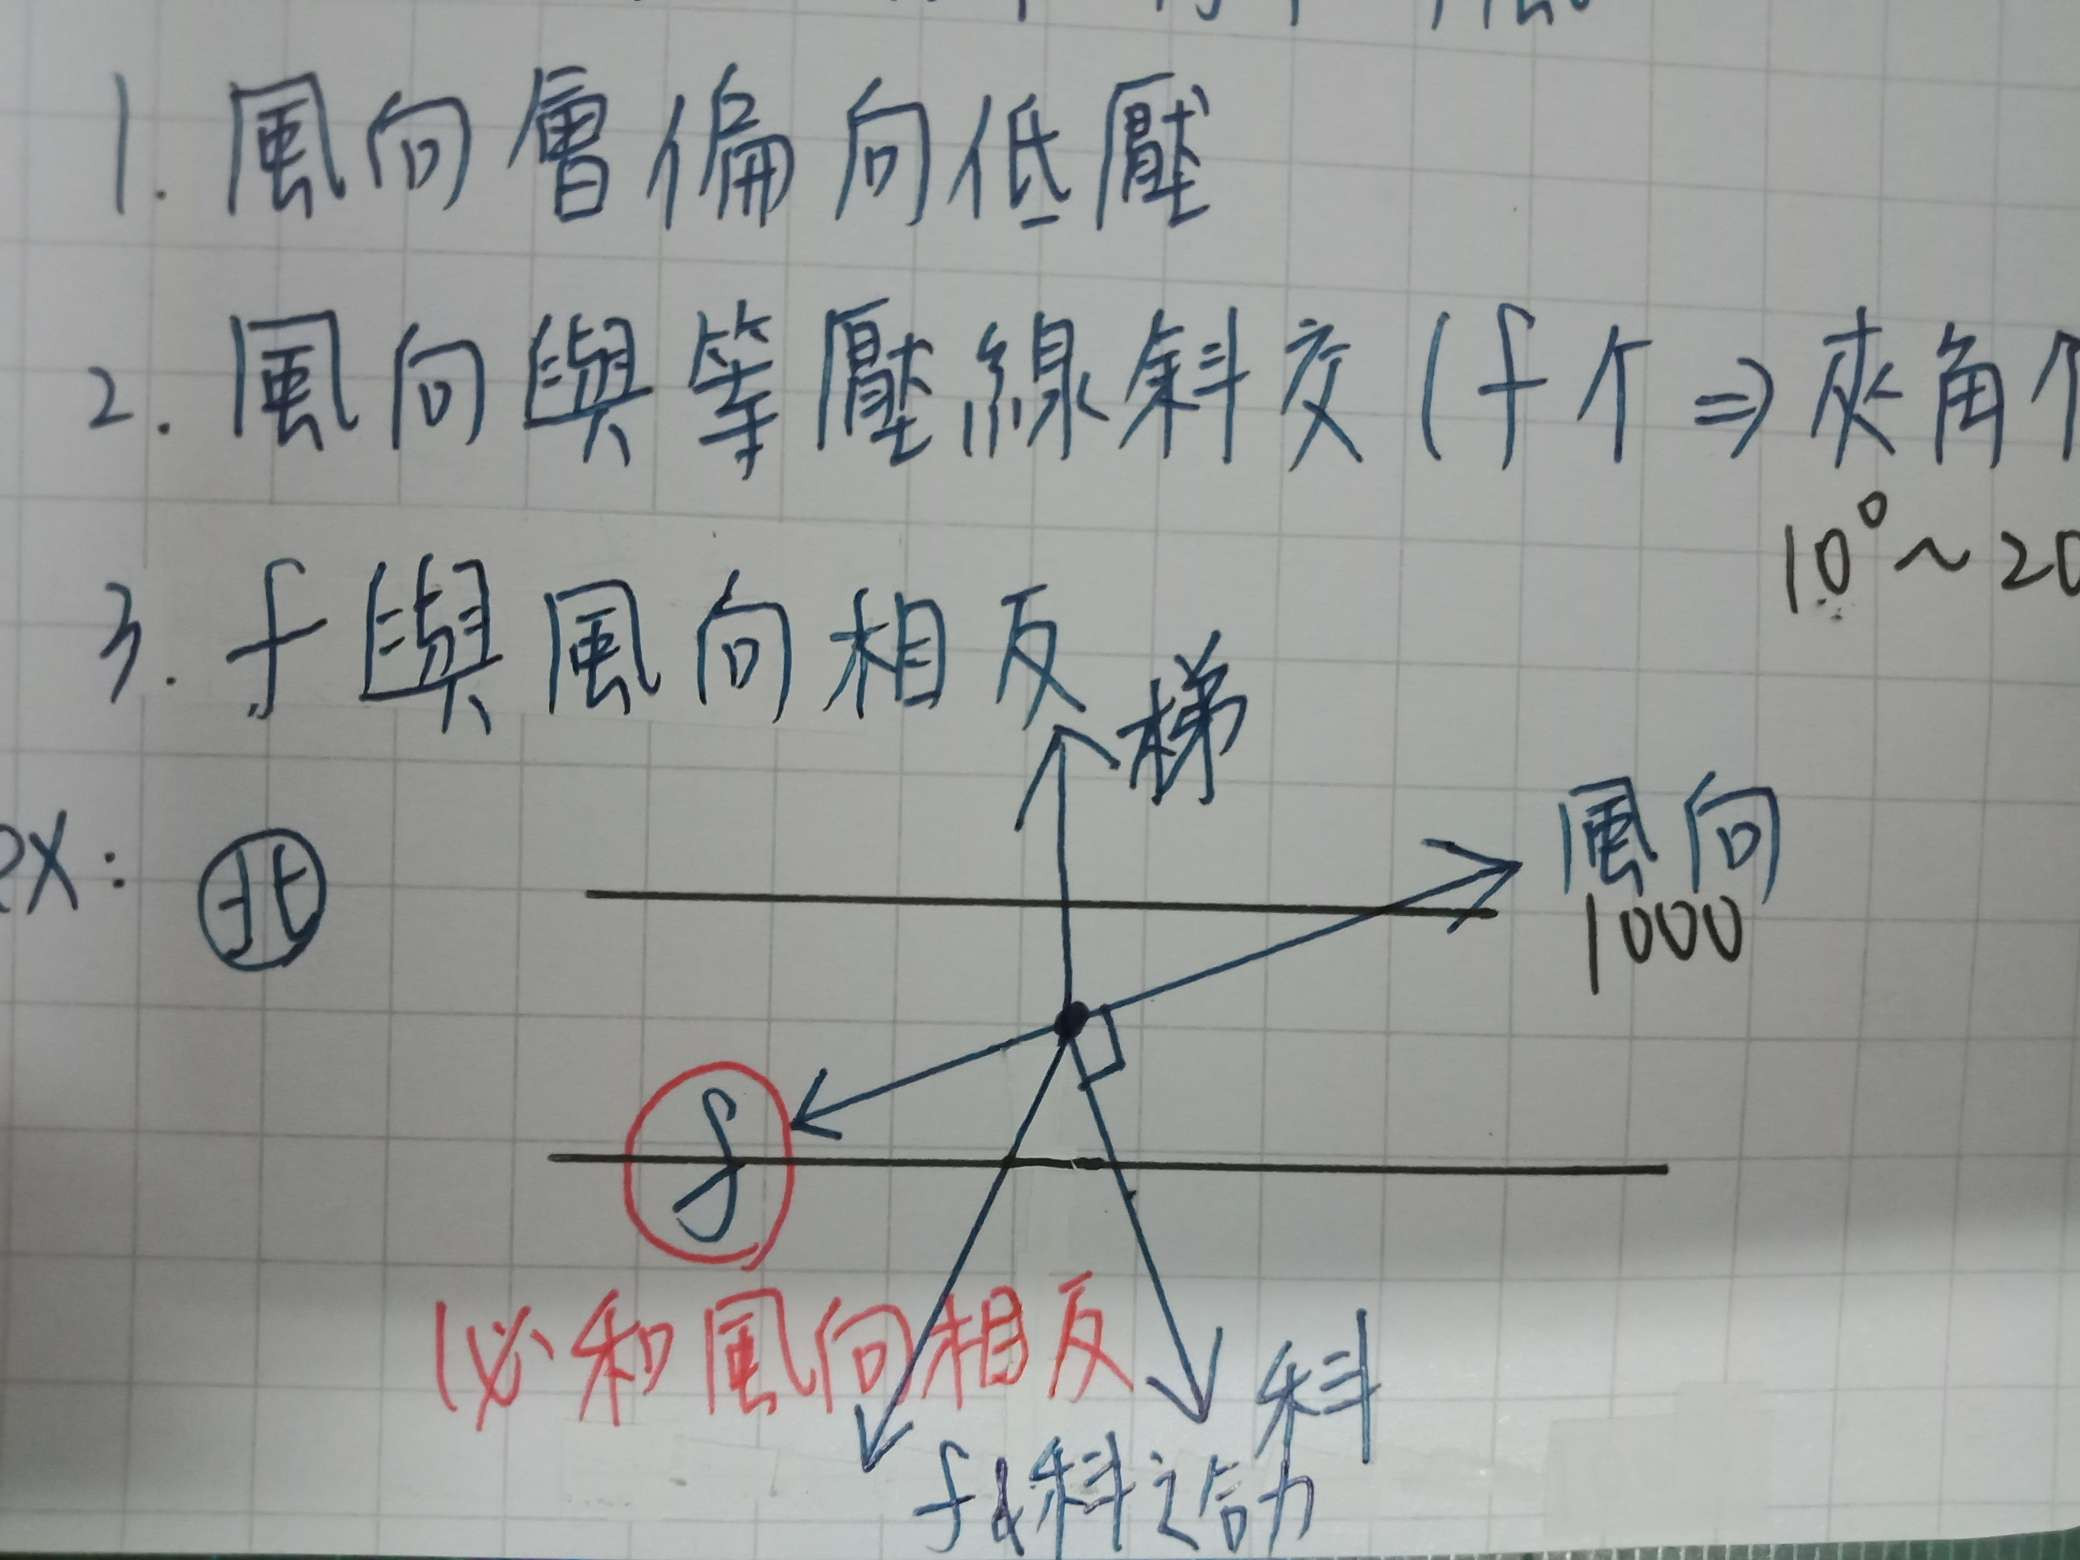 1. 風向會偏向低壓
2. 風向與等壓線斜交(f↑⇒夾角↑
10°~20
3. f與風向相反
梯
ex: 北
風向
1000
f
(必和風向相反
科
f&科之合力